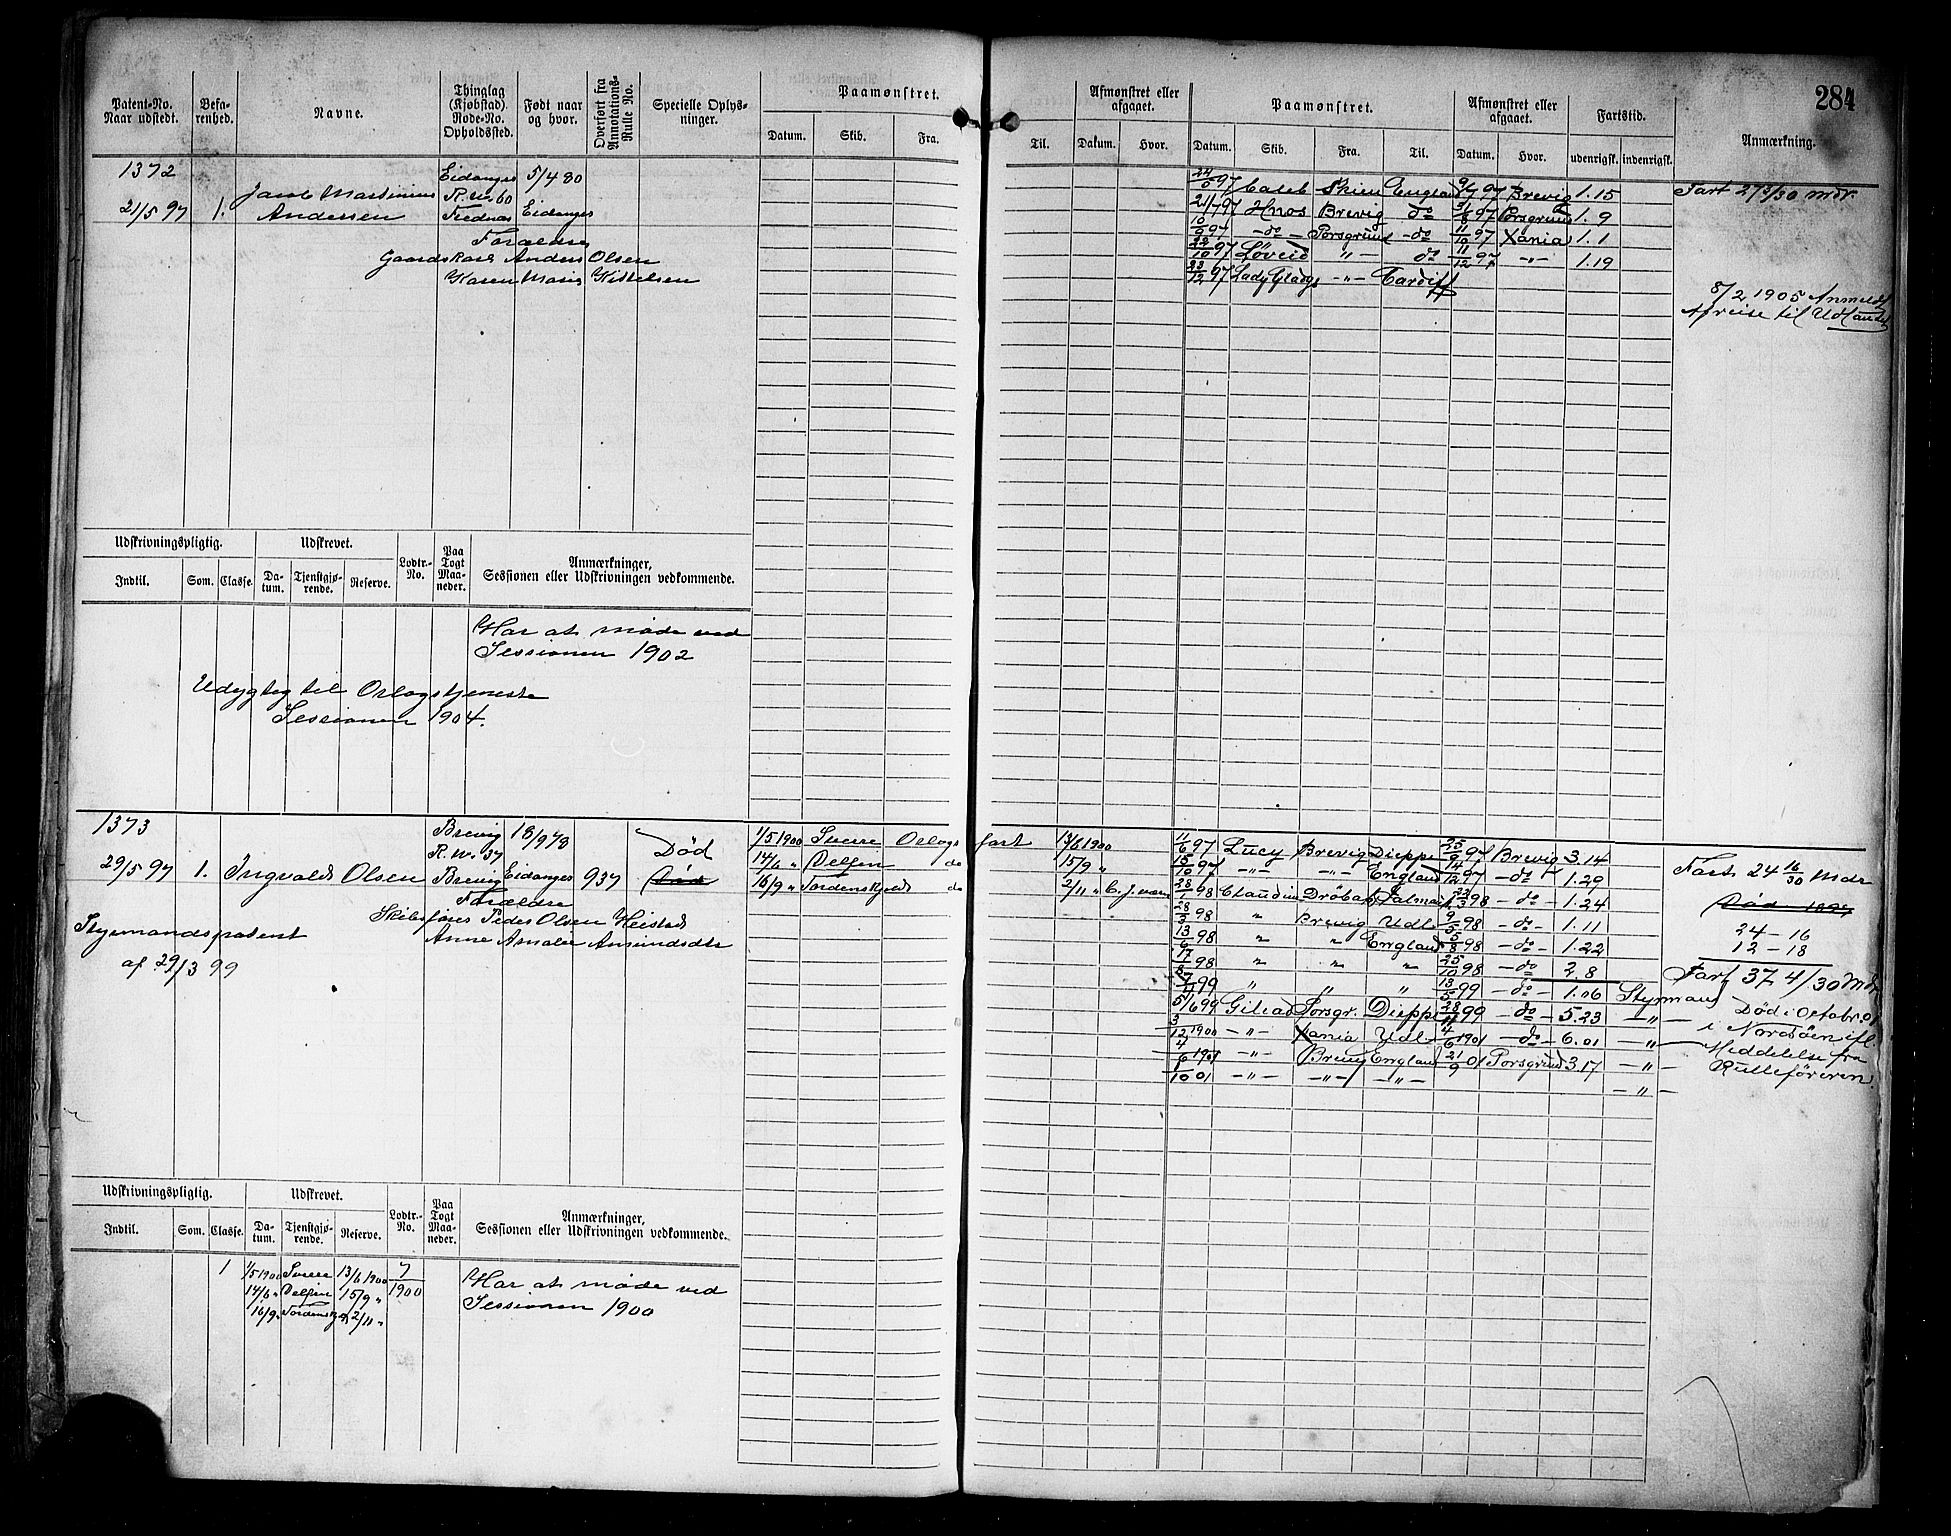 284
Patent-No. Naar udstedt. Befarenhed. Navne. Thinglag (Kjøbstad). Rode-No. Opholdssted. Født naar og hvor. Overført fra Annotations-Rulle No. Specielle Oplysninger. Paamønstret. Datum. Skib. Fra.
Til. Afmønstret eller afgaaet. Datum. Hvor. Paamønstret. Datum. Skib. Fra. Til. Afmønstret eller afgaaet. Datum. Hvor. Fartstid. udenrigsk. indenrigsk. Anmærkning.
1372 Eidanger 5/4 80
21/5 97 1. Jacob Martinius Andersen R. No. 60 Eidanger
Forældre
Gaardskarl Anders Olsen
Karen Maria Kittelsen
97 Caleb Skien England 97 Brevig 1.15 Fart 27
21/7 97 Hnos Brevig do 97 Porsgrund 1.9
97 -do- Porsgrund -do 11/10 97 Xania 1.1
22/10 97 Løveid -"- do 11/12 97 -"- 1.19
23/12 97 Lady Gladys -"- Cardiff
8/2 1905 Anmeldt
Afreise til Udlandet
Udskrivningspligtig. Udskrevet. Lodtr.-No. Paa Togt Maaneder. Anmærkninger, Sessionen eller Udskrivningen vedkommende.
Indtil. Som. Classe. Datum. Tjenstgjørende. Reserve.
Har at møde ved
Sessionen 1902
Udygtig til Orlogstjeneste
Sessionen 1904.
1373 Brevig 18/9 78 Død
29/5 97 1. Ingvald Olsen R. No. 37 Brevig Eidanger 937 Død
Forældre
Skibsfører Peder Olsen Heistad
Anne Amalie Amundsdtr
Styrmandspatent
af 29/3 99
1/5 1900 Sverre Orlogsfart 13/6 1900
14/6 " Delfen do 15/9 "
16/9 " Tordenskjold do 2/11 "
11/6 97 Lucy Brevig Dieppe 25/9 97 Brevig 3.14
15/10 97 -"- -"- England 14/12 97 -do- 1.29
28/1 98 Claudine Drøbak 98 -do- 1.24
28/3 98 " Brevig Udl. 9/5 98 -do- 1.11
13/6 98 " " England 5/8 98 -do- 1.22
98 " " " 25/10 98 -do 2.8
99 " " " 13/5 99 -do- 1.06 Styrmand
5/6 99 Gilead Porsgr. Dieppe 99 -do- 5.23 -"-
3/12 1900 -"- Xania Udl. 4/6 1901 -do- 6.01 -"-
4/6 1901 -"- Brevig England 21/9 01 Porsgrund 3.17 -"-
1/10 01 -"- -"- -"- -"-
Fart 24 16/30 Mdr
Død
24-16
12-18
Fart 37 4/30 Mdr
Død i Octobr. 01
i Nordsøen ifl.
Meddelelse fra
Rulleføreren.
Udskrivningspligtig. Udskrevet. Lodtr.-No. Paa Togt Maaneder. Anmærkninger, Sessionen eller Udskrivningen vedkommende.
Indtil. Som. Classe. Datum. Tjenstgjørende. Reserve.
1 1/5 1900 Sverre 13/6 1900 7/1900 Har at møde ved
14/6 " Delfen 15/9 " Sessionen 1900
16/9 " Tordenskj 2/11 "